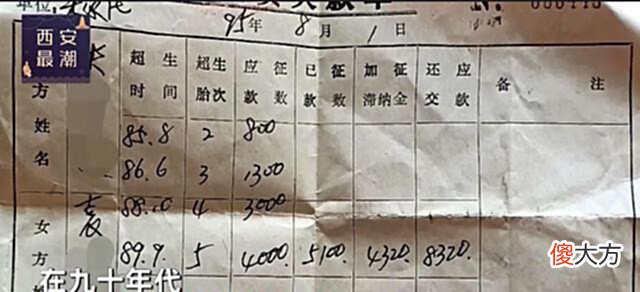 单位
95年8月1日
000113
西安最潮
方姓名
超生时间 超生胎次 应征款数 已征款数 加征滞纳金 还应交款 备注
85.8 2 800
86.6 3 1300
88.10 4 3000
女方姓
89.9 5 4000. 5100. 4320. 8320.
在九十年代
傻大方